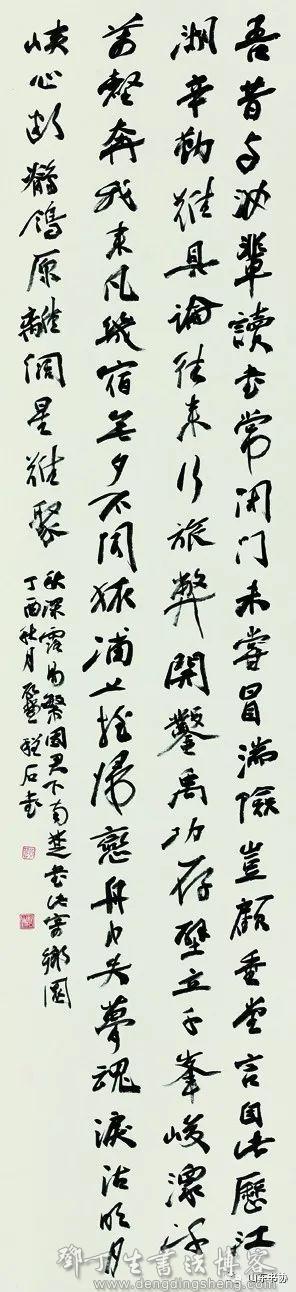 吾昔与汝輩讀書常閉门未嘗冒湍險豈顧垂堂言自此歷江
湖辛勤難具論往来行旅弊開鑿禹功存壁立千峯峻潨流
萬壑奔我来凡幾宿無夕不聞猿浦上搖歸戀舟中失夢魂淚沾明月
峽心斷鶺鴒原離闊星難聚
秋深露易繁因君下南楚書此寄鄉園
丁酉秋月石書
鄧丁生書法博客
www.dengdingsheng.com
山东书协